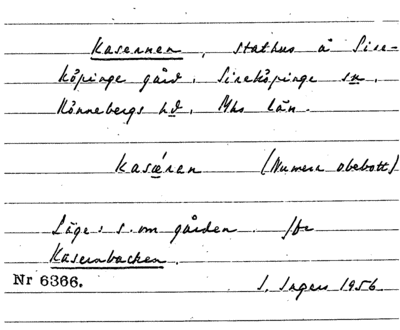 Kasernen, stathus å Sire-
köpinge gård, Sireköpinge sn,
Rönnebergs hd, Mhs län.
Kasǽrnan (Numera obebott)
Läge: s. om gården. Jfr
Kasernbacken.
Nr 6366. S. Ingers 1956